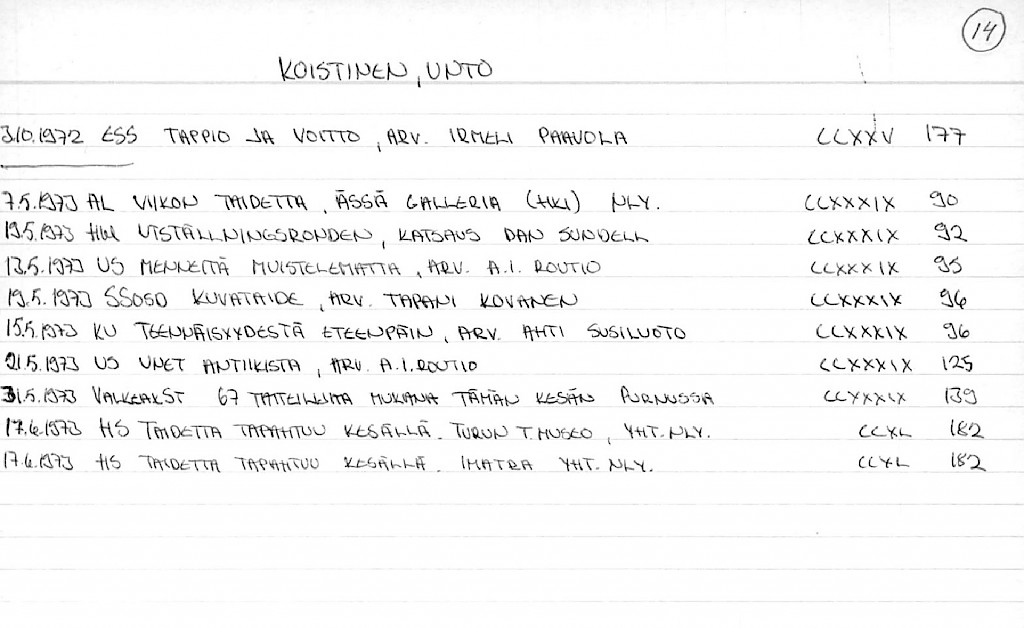 14
KOISTINEN, UNTO
3.10.1972 ESS TAPPIO JA VOITTO, ARV. IRMELI PAAVOLA CCXXV 177
7.5.1973 AL VIIKON TAIDETTA, ÄSSÄ GALLERIA (HKI) NLY. CCXXXIX 90
19.5.1973 HBL UTSTÄLLNINGSRONDEN, KATSAUS DAN SUNDELL CCXXXIX 92
13.5.1973 US MENNEITÄ MUISTELEMATTA, ARV. A.I. ROUTIO CCXXXIX 95
19.5.1973 SSOSD KUVATAIDE, ARV. TAPANI KOVANEN CCXXXIX 96
15.5.1973 KU TEENNÄISYYDESTÄ ETEENPÄIN, ARV. AHTI SUSILUOTO CCXXXIX 96
21.5.1973 US UNET ANTIIKISTA, ARV. A.I. ROUTIO CCXXXIX 125
31.5.1973 VALKEAKST 67 TAITEILIJAA MUKANA TÄMÄN KESÄN PURNUSSA CCXXXIX 139
17.6.1973 HS TAIDETTA TAPAHTUU KESÄLLÄ. TURUN T.MUSEO, YHT.NLY. CCXL 182
17.6.1973 HS TAIDETTA TAPAHTUU KESÄLLÄ. IMATRA YHT. NLY. CCXL 182